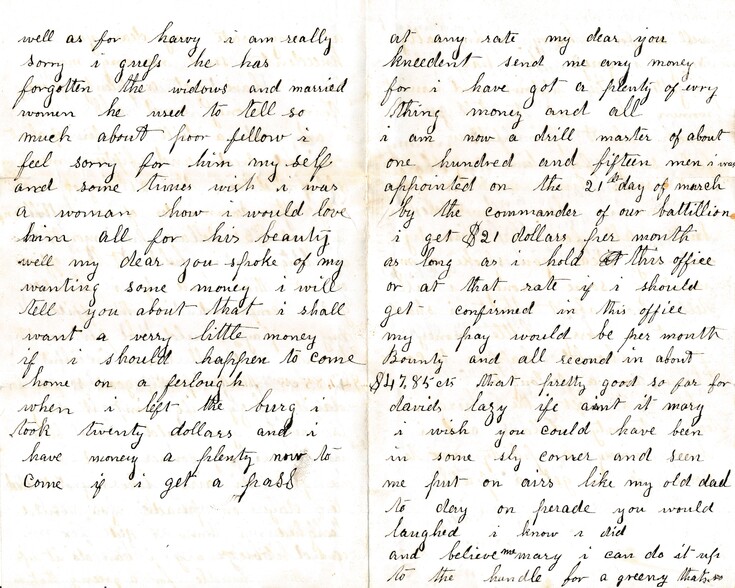 well as for harvy i am really
sorry i guess he has
forgotten the widows and married
women he used to tell so
much about poor fellow i
feel sorry for him my self
and some times wish i was
a woman how i would love
him all for his beauty
well my dear you spoke of my
wanting some money i will
tell you about that i shall
want a verry little money
if i should happen to come
home on a ferlough
when i left the burg i
took twenty dollars and i
have money a plenty now to
come if i get a pass
at any rate my dear you
kneedent send me any money
for i have got a plenty of evry
thing money and all
i am now a drill master of about
one hundred and fifteen men i was
appointed on the 21st day of march
by the commander of our battillion
i get $21 dollars per month
as long as i hold this office
or at that rate if i should
get confirmed in this office
my pay would be per month
Bounty and all second in about
$47,85 cts that pretty good so far for
davids lazy ife aint it mary
i wish you could have been
in some sly corner and seen
me put on airs like my old dad
to day on perade you would
laughed i know i did
and believe me mary i can do it up
to the handle for a greeny thats so